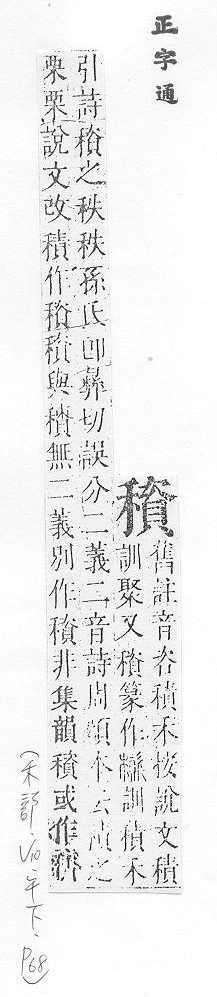 正字通
舊註音咨積禾按說文積
訓聚又篆作訓積禾
引詩之秩秩孫氏即彝切誤分二義二音詩周頌本云積之
栗栗說文改積作與積無二義別作非集韻或作穧
(禾部、V10、午下、P68)